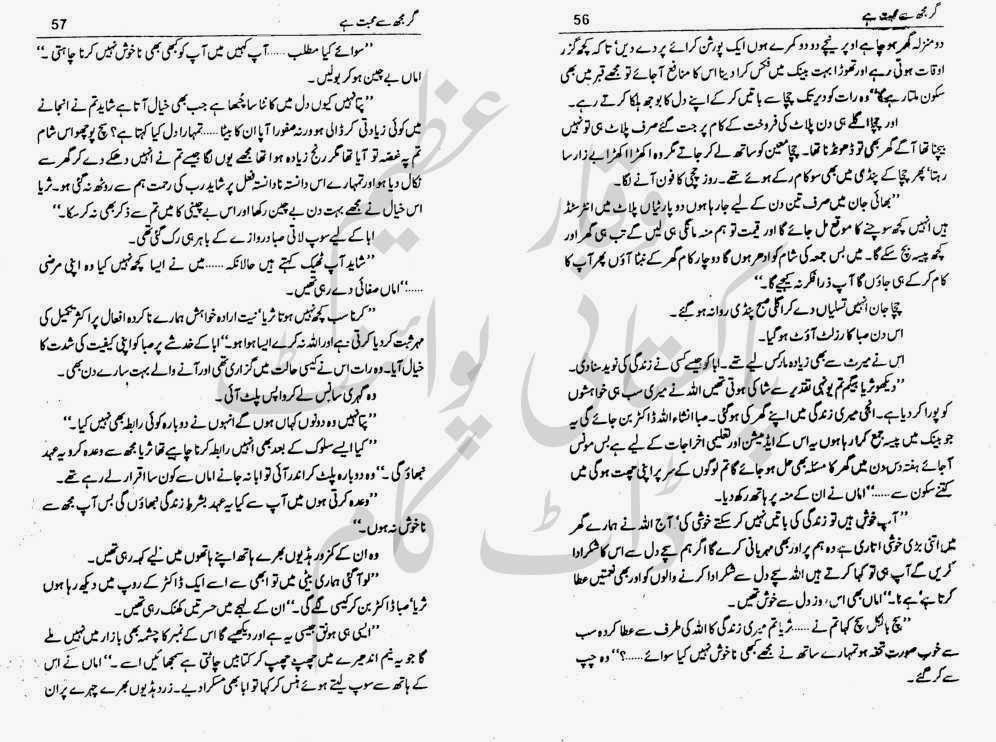 گر مجھ سے محبت ہے
56
دو منزلہ گھر ہو جا ہے اوپر نیچے دو دو کمرے ہوں ایک پورشن کرائے پر دے دیں‘ تا کہ کچھ گزر
اوقات ہوتی رہے اور تھوڑا بہت بینک میں فکس کرا دینا اس کا منافع آ جائے تو مجھے قبر میں بھی
سکون ملتا رہے گا“ وہ رات کو دیر تک چچا سے باتیں کر کے اپنے دل کا بوجھ ہلکا کرتے رہے۔
اور چچا اگلے ہی دن پلاٹ کی فروخت کے کام پر جت گئے صرف پلاٹ ہی تو نہیں
بیچنا تھا آگے گھر بھی تو ڈھونڈنا تھا۔ چچا معین کو ساتھ لے کر جاتے مگر وہ اکھڑا اکھڑا بے زار سا
رہتا‘ پھر چچا کے پنڈی میں بھی سو کام رکے ہوئے تھے۔ روز چچی کا فون آنے لگا۔
”بھائی جان میں صرف تین دن کے لیے جا رہا ہوں دو پارٹیاں پلاٹ میں انٹرسٹڈ
ہیں انہیں کچھ سوچنے کا موقع مل جائے گا اور قیمت تو ہم منہ مانگی ہی لیں گے تب ہی گھر اور
کچھ پیسہ بچ سکے گا۔ میں بس جمعہ کی شام کو ادھر ہوں گا دو چار کام گھر کے نبٹا آؤں پھر آپ کا
کام کر کے ہی جاؤں گا آپ ذرا فکر نہ کیجیے گا۔“
چچا جان انہیں تسلیاں دے کر اگلی صبح پنڈی روانہ ہو گئے۔
اس دن صبا کا رزلٹ آؤٹ ہو گیا۔
اس نے میرٹ سے بھی زیادہ مارکس لیے تھے۔ ابا کو جیسے کسی نے زندگی کی نوید سنا دی۔
”دیکھو ثریا بیگم تم یونہی تقدیر سے شاکی ہوتی تھیں اللہ نے میری سب ہی خواہشوں
کو پورا کر دیا ہے۔ انجی میری زندگی میں اپنے گھر کی ہو گئی۔ صبا انشاء اللہ ڈاکٹر بن جائے گی یہ
جو بینک میں پیسہ جمع کروا رہا ہوں یہ اس کے ایڈمیشن اور تعلیمی اخراجات کے لیے ہے بس مونس
آ جائے ہفتہ دس دن میں گھر کا مسئلہ بھی حل ہو جائے گا تم لوگوں کے سر پر اپنی چھت ہو گی میں
کتنے سکون سے......“ اماں نے ان کے منہ پر ہاتھ رکھ دیا۔
”آپ خوش ہیں تو زندگی کی باتیں نہیں کر سکتے خوشی کی‘ آج اللہ نے ہمارے گھر
میں اتنی بڑی خوشی اتاری ہے وہ ہم پر اور بھی مہربانی کرے گا اگر ہم سچے دل سے اس کا شکر ادا
کریں گے آپ ہی تو کہا کرتے ہیں اللہ سچے دل سے شکر ادا کرنے والوں کو اور بھی نعمتیں عطا
کرتا ہے‘ ہے نا۔“ اماں بھی اس روز دل سے خوش تھیں۔
”سچ بالکل سچ کہا تم نے...... ثریا تم میری زندگی کا اللہ کی طرف سے عطا کردہ سب
سے خوب صورت تحفہ ہو تمہارے ساتھ نے مجھے کبھی ناخوش نہیں کیا سوائے......؟“ وہ چپ
سے کر گئے۔
گر مجھ سے محبت ہے
57
”سوائے کیا مطلب...... آپ کہیں میں آپ کو کبھی بھی ناخوش نہیں کرنا چاہتی۔“
اماں بے چین ہو کر بولیں۔
”پتا نہیں کیوں دل میں کانٹا سا چُبھا ہے جب بھی خیال آتا ہے شاید تم نے انجانے
میں کوئی زیادتی کر ڈالی ہو ورنہ صفورا آپا ان کا بیٹا...... تمہارا دل کیا کہتا ہے؟ سچ پوچھو اس شام
تم پہ غصہ تو آیا تھا مگر رنج زیادہ ہوا تھا مجھے یوں لگا جیسے تم نے انہیں دھکے دے کر گھر سے
نکال دیا ہو اور تمہارے اس دانستہ نادانستہ فعل پر شاید رب کی رحمت ہم سے روٹھ نہ گئی ہو۔ ثریا
اس خیال نے مجھے بہت دن بے چین رکھا اور اس بے چینی کا میں تم سے ذکر بھی نہ کر سکا۔“
ابا کے لیے سوپ لاتی صبا دروازے کے باہر ہی رک گئی تھی۔
”شاید آپ ٹھیک کہتے ہیں حالانکہ...... میں نے ایسا کچھ نہیں کیا وہ اپنی مرضی
......“ اماں صفائی دے رہی تھیں۔
”کرنا سب کچھ نہیں ہوتا ثریا‘ نیت ارادہ خواہش ہمارے ناکردہ افعال پر اکثر تکمیل کی
مہر ثبت کر دیا کرتی ہے اور اللہ نہ کرے ایسا ہوا ہو۔“ ابا کے خدشے پر صبا کو اپنی کیفیت کی شدت کا
خیال آیا۔ وہ رات اس نے کیسی حالت میں گزاری تھی اور آنے والے بہت سارے دن بھی۔
وہ گہری سانس لے کر واپس پلٹ آئی۔
”پتا نہیں وہ دونوں کہاں ہوں گے انہوں نے دوبارہ کوئی رابطہ بھی نہیں کیا۔“
”کیا ایسے سلوک کے بعد بھی انہیں رابطہ کرنا چاہیے تھا ثریا مجھ سے وعدہ کرو یہ عہد
نبھاؤ گی۔“ وہ دوبارہ پلٹ کر اندر آئی تو ابا نہ جانے اماں سے کون سا اقرار لے رہے تھے۔
”وعدہ کرتی ہوں میں آپ سے کیا یہ عہد بشرط زندگی نبھاؤں گی بس آپ مجھ سے
ناخوش نہ ہوں۔“
وہ ان کے کمزور ہڈیوں بھرے ہاتھ اپنے ہاتھوں میں لیے کہہ رہی تھیں۔
”لو آ گئی ہماری بیٹی میں تو ابھی سے اسے ایک ڈاکٹر کے روپ میں دیکھ رہا ہوں
ثریا‘ صبا ڈاکٹر بن کر کیسی لگے گی۔“ ان کے لہجے میں حسرتیں کھنک رہی تھیں۔
”ایسی ہی ہونق جیسی یہ ہے اور دیکھیے گا اس کے نمبر کا چشمہ بھی بازار میں نہیں ملے
گا جو یہ نیم اندھیرے میں چھپ چھپ کر کتابیں چاٹتی ہے سمجھائیں اسے۔“ اماں نے اس
کے ہاتھ سے سوپ لیتے ہوئے ہنس کر کہا تو ابا بھی مسکرا دیے۔ زرد ہڈیوں بھرے چہرے پر ان
عظیم
وقار
پاکستانی پوائنٹ
ڈاٹ کام